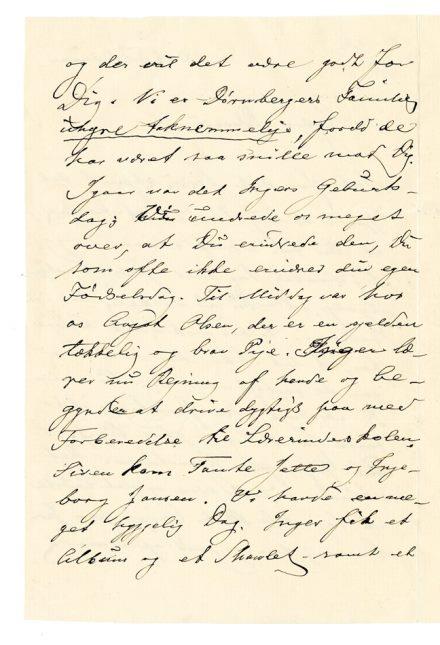 og der vil det være godt for
Dig. Vi er Dørnbergers Familie
uhyre taknemmelige, fordi de
har været saa snille mod Dig.
Igaar var det Ingers Geburts-
dag; Vi undrede os meget
over, at Du erindrede den, Du
som ofte ikke erindrer din egen
Fødselsdag. Til Middag var hos
os August Olsen, der er en sjelden
tækkelig og brav Pige. Inger læ-
rer nu Regning af hende og be-
gynder at drive dygtigt paa med
Forberedelse til Lærerindeskolen.
Siden kom Tante Jette og Inge-
borg Jansen. Vi havde en me-
get hyggelig Dag. Inger fik et
Album og et Skawlet samt et